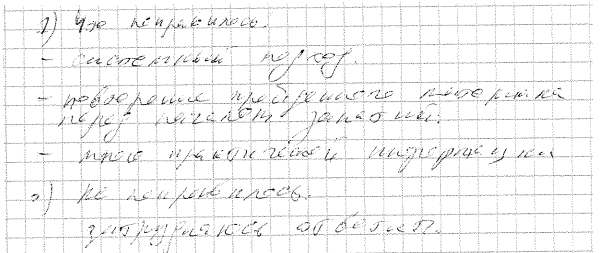 1) Что понравилось.
- системный подход.
- повторение пройденного материала
перед началом занятий.
- много практической информации
2) Не понравилось.
затрудняюсь ответить.